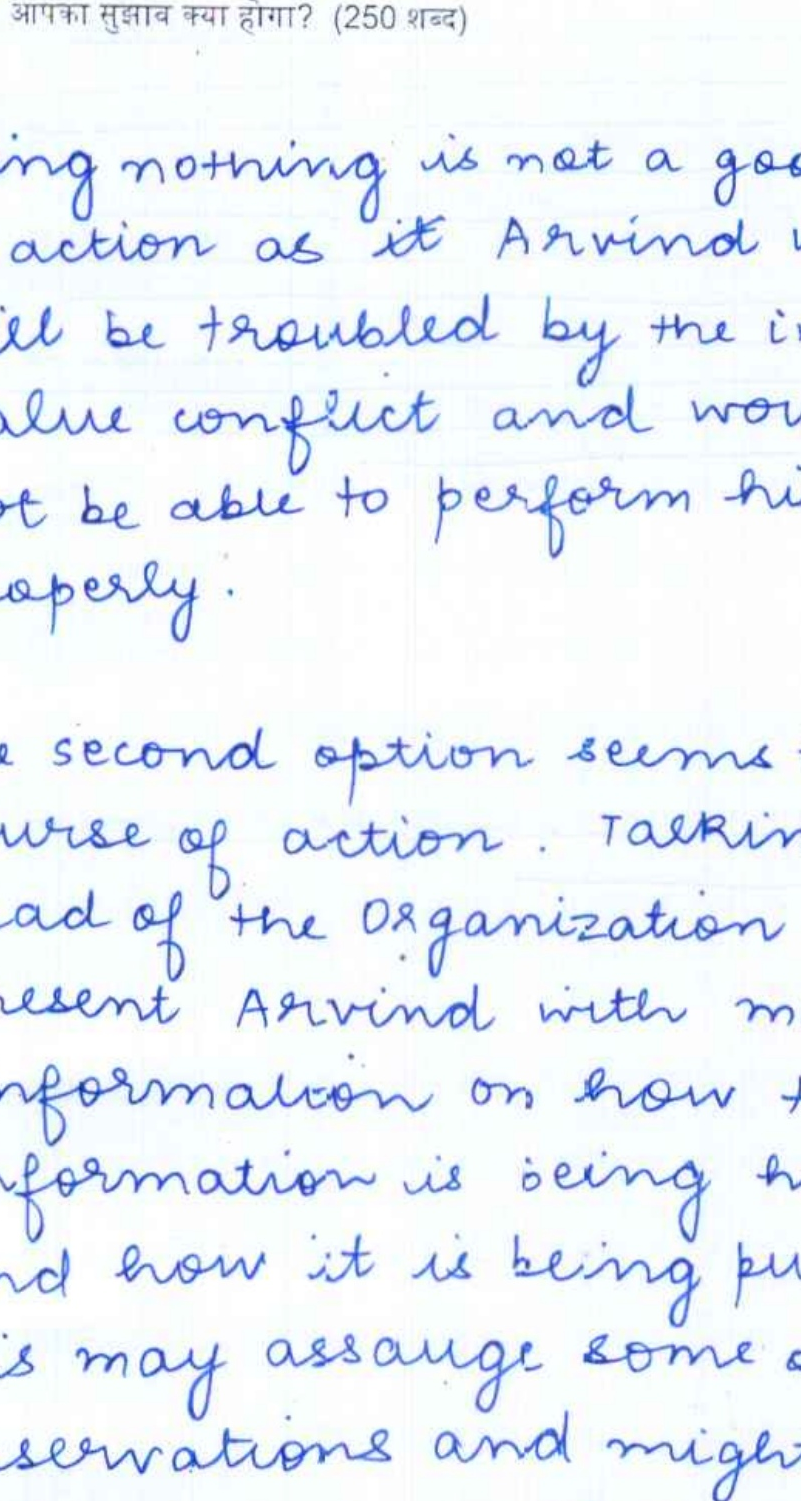 आपका सुझाव क्या होगा? (250 शब्द)
ing nothing is not a goo
action as it Arvind w
ill be troubled by the in
alue conflict and wou
ot be able to perform hi
operly.
e second option seems
urse of action. Talkin
ad of the Organization
resent Arvind with m
nformation on how t
formation is being h
nd how it is being pu
is may assauge some o
servations and migh